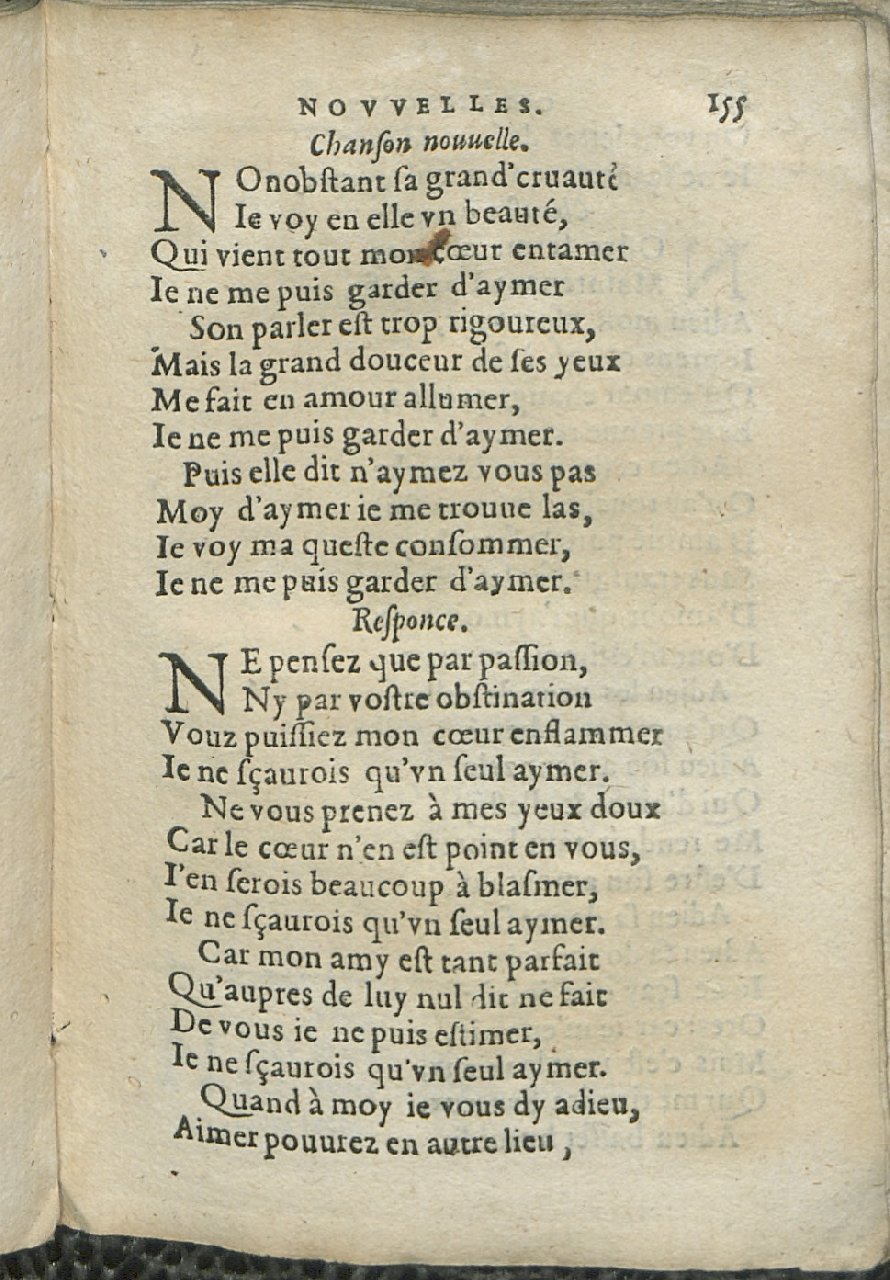 NOVVELLES. 155
Chanſon nouuelle.
NOnobſtant ſa grand'cruauté
Ie voy en elle vn beauté,
Qui vient tout mon cœur entamer
Ie ne me puis garder d'aymer
Son parler eſt trop rigoureux,
Mais la grand douceur de ſes yeux
Me fait en amour allumer,
Ie ne me puis garder d'aymer.
Puis elle dit n'aymez vous pas
Moy d'aymer ie me trouue las,
Ie voy ma queſte conſommer,
Ie ne me puis garder d'aymer.
Reſponce.
NE penſez que par paſſion,
Ny par voſtre obſtination
Vouz puiſſiez mon cœur enflammer
Ie ne ſçaurois qu'vn ſeul aymer.
Ne vous prenez à mes yeux doux
Car le cœur n'en eſt point en vous,
I'en ſerois beaucoup à blaſmer,
Ie ne ſçaurois qu'vn ſeul aymer.
Car mon amy eſt tant parfait
Qu'aupres de luy nul dit ne fait
De vous ie ne puis eſtimer,
Ie ne ſçaurois qu'vn ſeul aymer.
Quand à moy ie vous dy adieu,
Aimer pouurez en autre lieu,